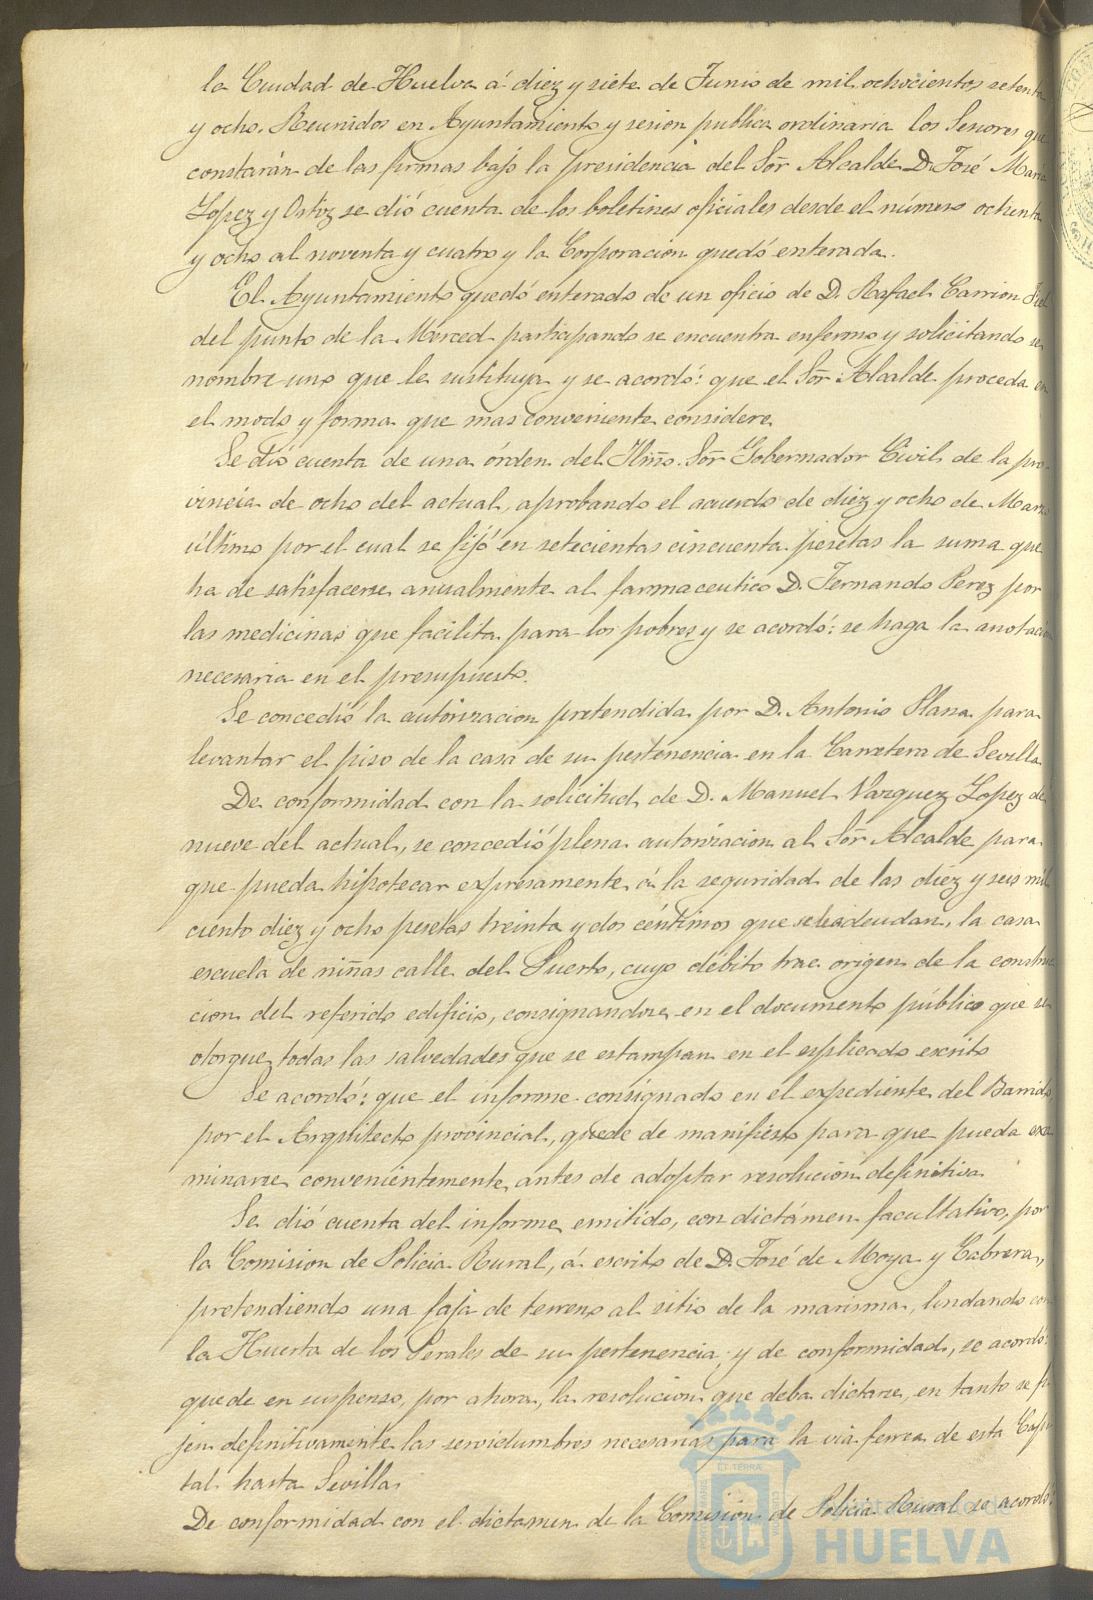 la Ciudad de Huelva á diez y siete de Junio de mil ochocientos setenta
y ocho. Reunidos en Ayuntamiento y sesion publica ordinaria los Señores que
constarán de las firmas bajo la presidencia del Sor̃ Alcalde D. José Maria
Lopez y Ortiz se dió cuenta de los boletines oficiales desde el número ochenta
y ocho al noventa y cuatro y la Corporacion quedó enterada.
El Ayuntamiento quedó enterado de un oficio de D. Rafael Carrion Fiel
del punto de la Merced participando se encuentra enfermo y solicitando se
nombre uno que le sustituya y se acordó: que el Sor̃ Alcalde proceda en
el modo y forma que mas conveniente considere.
Se dió cuenta de una órden del Iltm̃o. Sor̃ Gobernador Civil de la pro-
vincia de ocho del actual, aprobando el acuerdo de diez y ocho de Marzo
último por el cual se fijó en setecientas cincuenta pesetas la suma que
ha de satisfacerse anualmente al farmaceutico D. Fernando Perez por
las medicinas que facilita para los pobres y se acordó: se haga la anotacion
necesaria en el presupuesto.
Se concedió la autorizacion pretendida por D. Antonio Plana para
levantar el piso de la casa de su pertenencia en la Carretera de Sevilla
De conformidad con la solicitud de D. Manuel Vazquez Lopez de
nueve del actual, se concedió plena autorizacion al Sor̃ Alcalde para
que pueda hipotecar expresamente á la seguridad de las diez y seis mil
ciento diez y ocho pesetas treinta y dos céntimos que se le adeudan, la casa
escuela de niñas calle del Puerto, cuyo débito trae origen de la construc
cion del referido edificio, consignandose en el documento público que se
otorgue todas las salvedades que se estampan en el esplicado escrito
Se acordó: que el informe consignado en el expediente del Barrido,
por el Arquitecto provincial, quede de manifiesto para que pueda exa
minarse convenientemente antes de adoptar resolucion definitiva
Se dió cuenta del informe emitido, con dictámen facultativo, por
la Comision de Policia Rural, á escrito de D. José de Moya y Cabrera,
pretendiendo una faja de terreno al sitio de la marisma, lindando con
la Huerta de los Perales de su pertenencia, y de conformidad, se acordó:
quede en suspenso, por ahora, la resolucion que deba dictarse, en tanto se fi
jen definitivamente las servidumbres necesarias para la via ferrea de esta Capi
tal hasta Sevilla.
De conformidad con el dictamen de la Comision de Policia Rural se acordó:
Ayuntamiento de
HUELVA